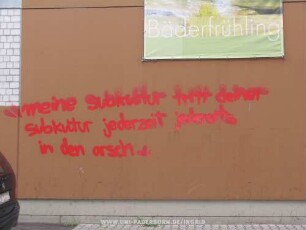 Bäderfrühling
meine subkultur tritt deiner
subkultur jederzeit
in den arsch
WWW.UNI-PADERBORN.DE/INGRID